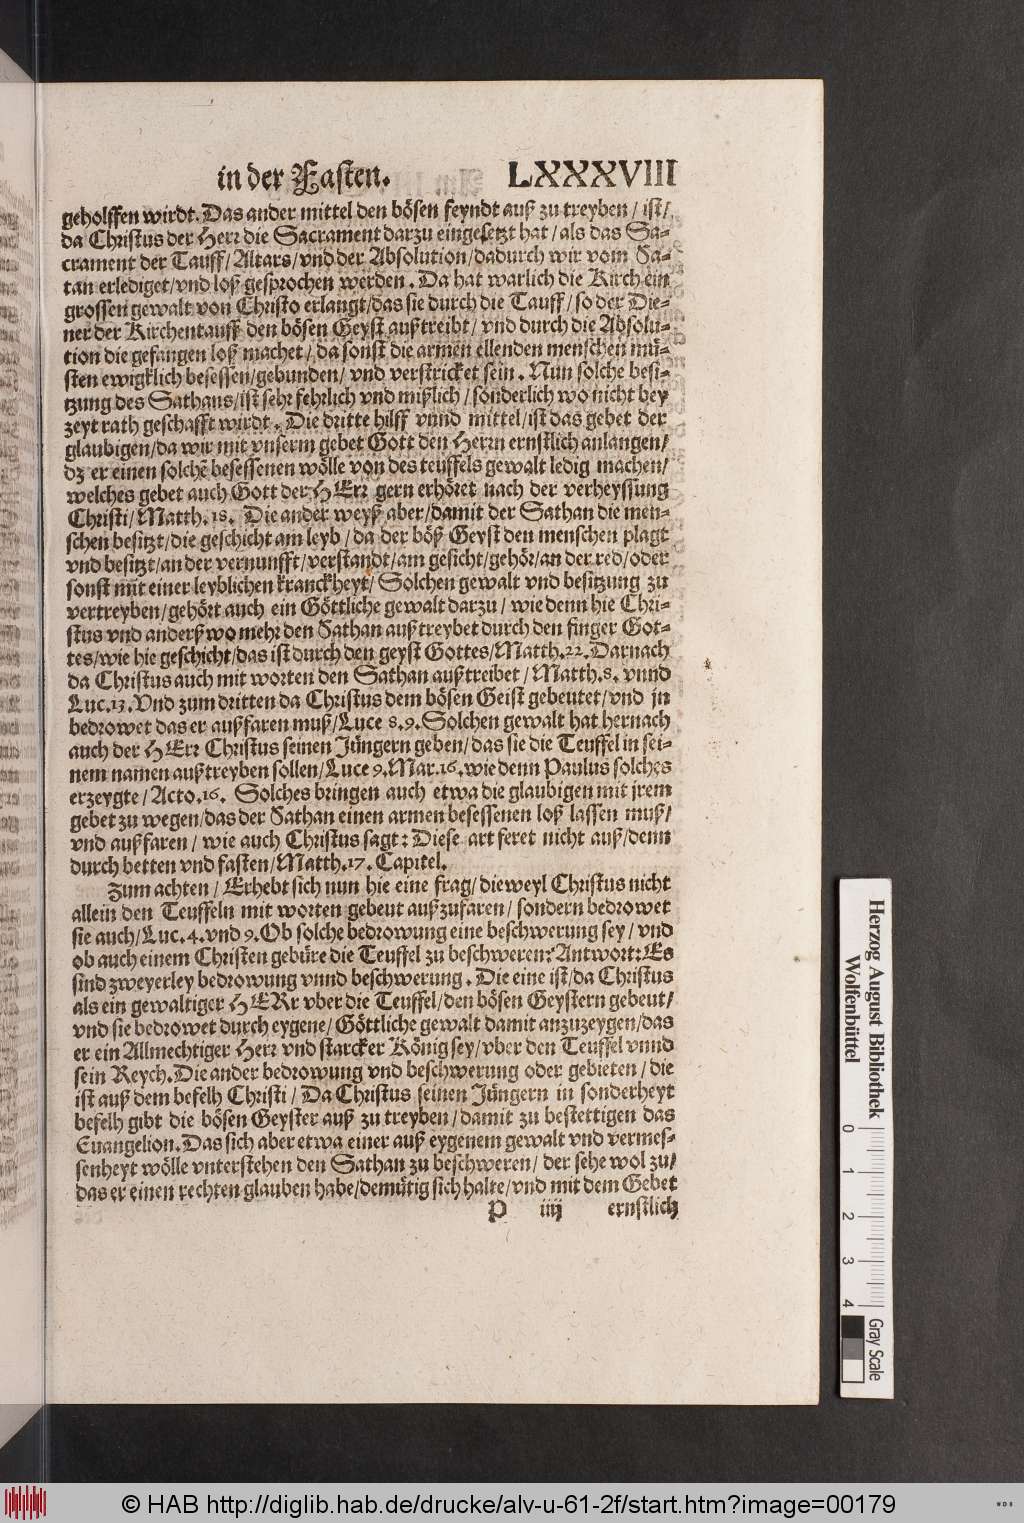 in der Fasten. LXXXVIII
geholffen wirdt. Das ander mittel den bösen feyndt auß zu treyben / ist/
da Christus der Herr die Sacrament darzu eingesetzt hat / als das Sa-
crament der Tauff / Altars / vnd der Absolution / dadurch wir vom Sa-
tan erlediget / vnd loß gesprochen werden. Da hat warlich die Kirch ein
grossen gewalt von Christo erlangt / das sie durch die Tauff / so der Die-
ner der Kirchen tauff den bösen Geyst außtreibt / vnd durch die Absolu-
tion die gefangen loß machet / da sonst die armen ellenden menschen mü-
sten ewigklich besessen / gebunden / vnd verstricket sein. Nun solche besi-
tzung des Sathans / ist sehr fehrlich vnd mißlich / sonderlich wo nicht bey
zeyt rath geschafft wirdt. Die dritte hilff vnnd mittel / ist das gebet der
glaubigen / da wir mit vnserm gebet Gott den Herrn ernstlich anlangen /
dz er einen solchē besessenen wölle von des teuffels gewalt ledig machen /
welches gebet auch Gott der HErr gern erhöret nach der verheyssung
Christi / Matth. 18. Die ander weyß aber / damit der Sathan die men-
schen besitzt / die geschicht am leyb / da der böß Geyst den menschen plagt
vnd besitzt / an der vernunfft / verstandt / am gesicht / gehör / an der red / oder
sonst mit einer leyblichen kranckheyt / Solchen gewalt vnd besitzung zu
vertreyben / gehört auch ein Göttliche gewalt darzu / wie denn hie Chri-
stus vnd anderßwo mehr den Sathan außtreybet durch den finger Got-
tes / wie hie geschicht / das ist durch den geyst Gottes / Matth. 22. Darnach
da Christus auch mit worten den Sathan außtreibet / Matth. 8. vnnd
Luc. 13. Vnd zum dritten da Christus dem bösen Geist gebeutet / vnd jn
bedrowet das er außfaren muß / Luce 8. 9. Solchen gewalt hat hernach
auch der HErr Christus seinen Jüngern geben / das sie die Teuffel in sei-
nem namen außtreyben sollen / Luce 9. Mar. 16. wie denn Paulus solches
erzeygte / Acto. 16. Solches bringen auch etwa die glaubigen mit jrem
gebet zu wegen / das der Sathan einen armen besessenen loß lassen muß /
vnd außfaren / wie auch Christus sagt: Diese art feret nicht auß / denn
durch betten vnd fasten / Matth. 17. Capitel.
Zum achten / Erhebt sich nun hie eine frag / dieweyl Christus nicht
allein den Teuffeln mit worten gebeut außzufaren / sondern bedrowet
sie auch / Luc. 4. vnd 9. Ob solche bedrowung eine beschwerung sey / vnd
ob auch einem Christen gebüre die Teuffel zu beschweren? Antwort: Es
sind zweyerley bedrowung vnnd beschwerung. Die eine ist / da Christus
als ein gewaltiger HERr vber die Teuffel / den bösen Geystern gebeut /
vnd sie bedrowet durch eygene / Göttliche gewalt damit anzuzeygen / das
er ein Allmechtiger Herr vnd starcker König sey / vber den Teuffel vnnd
sein Reych. Die ander bedrowung vnd beschwerung oder gebieten / die
ist auß dem befelh Christi / Da Christus seinen Jüngern in sonderheyt
befelh gibt die bösen Geyster auß zu treyben / damit zu bestettigen das
Euangelion. Das sich aber etwa einer auß eygenem gewalt vnd vermes-
senheyt wölle vnterstehen den Sathan zu beschweren / der sehe wol zu /
das er einen rechten glauben habe / demütig sich halte / vnd mit dem Gebet
P iiij ernstlich
Herzog August Bibliothek
Wolfenbüttel
0 1 2 3 4
Gray Scale
© HAB http://diglib.hab.de/drucke/alv-u-61-2f/start.htm?image=00179